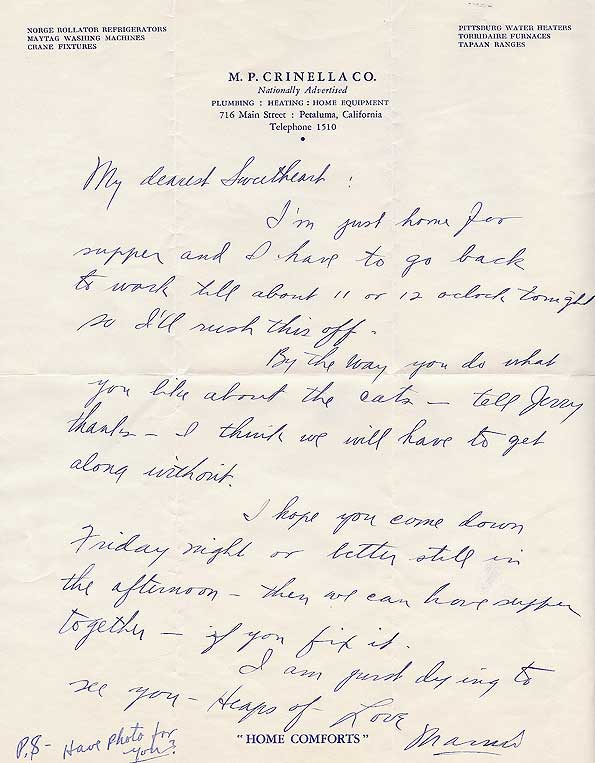 NORGE ROLLATOR REFRIGERATORS
MAYTAG WASHING MACHINES
CRANE FIXTURES
PITTSBURG WATER HEATERS
TORRIDAIRE FURNACES
TAPAAN RANGES
M. P. CRINELLA CO.
Nationally Advertised
PLUMBING : HEATING : HOME EQUIPMENT
716 Main Street : Petaluma, California
Telephone 1510
My dearest Sweetheart :
I'm just home for
supper and I have to go back
to work till about 11 or 12 oclock tonight
so I'll rush this off -
By the way you do what
you like about the cats - tell Jerry
thanks - I think we will have to get
along without.
I hope you come down
Friday night or better still in
the afternoon - then we can have supper
together - if you fix it.
I am just dying to
see you - Heaps of Love
P.S - Have photo for
you?
"HOME COMFORTS"